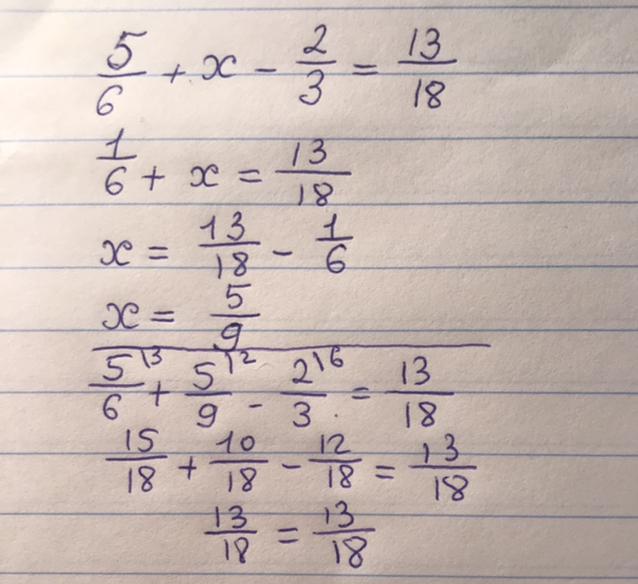 5/6 + x - 2/3 = 13/18
1/6 + x = 13/18
x = 13/18 - 1/6
x = 5/9
5\3/6 + 5\2/9 - 2\6/3 = 13/18
15/18 + 10/18 - 12/18 = 13/18
13/18 = 13/18